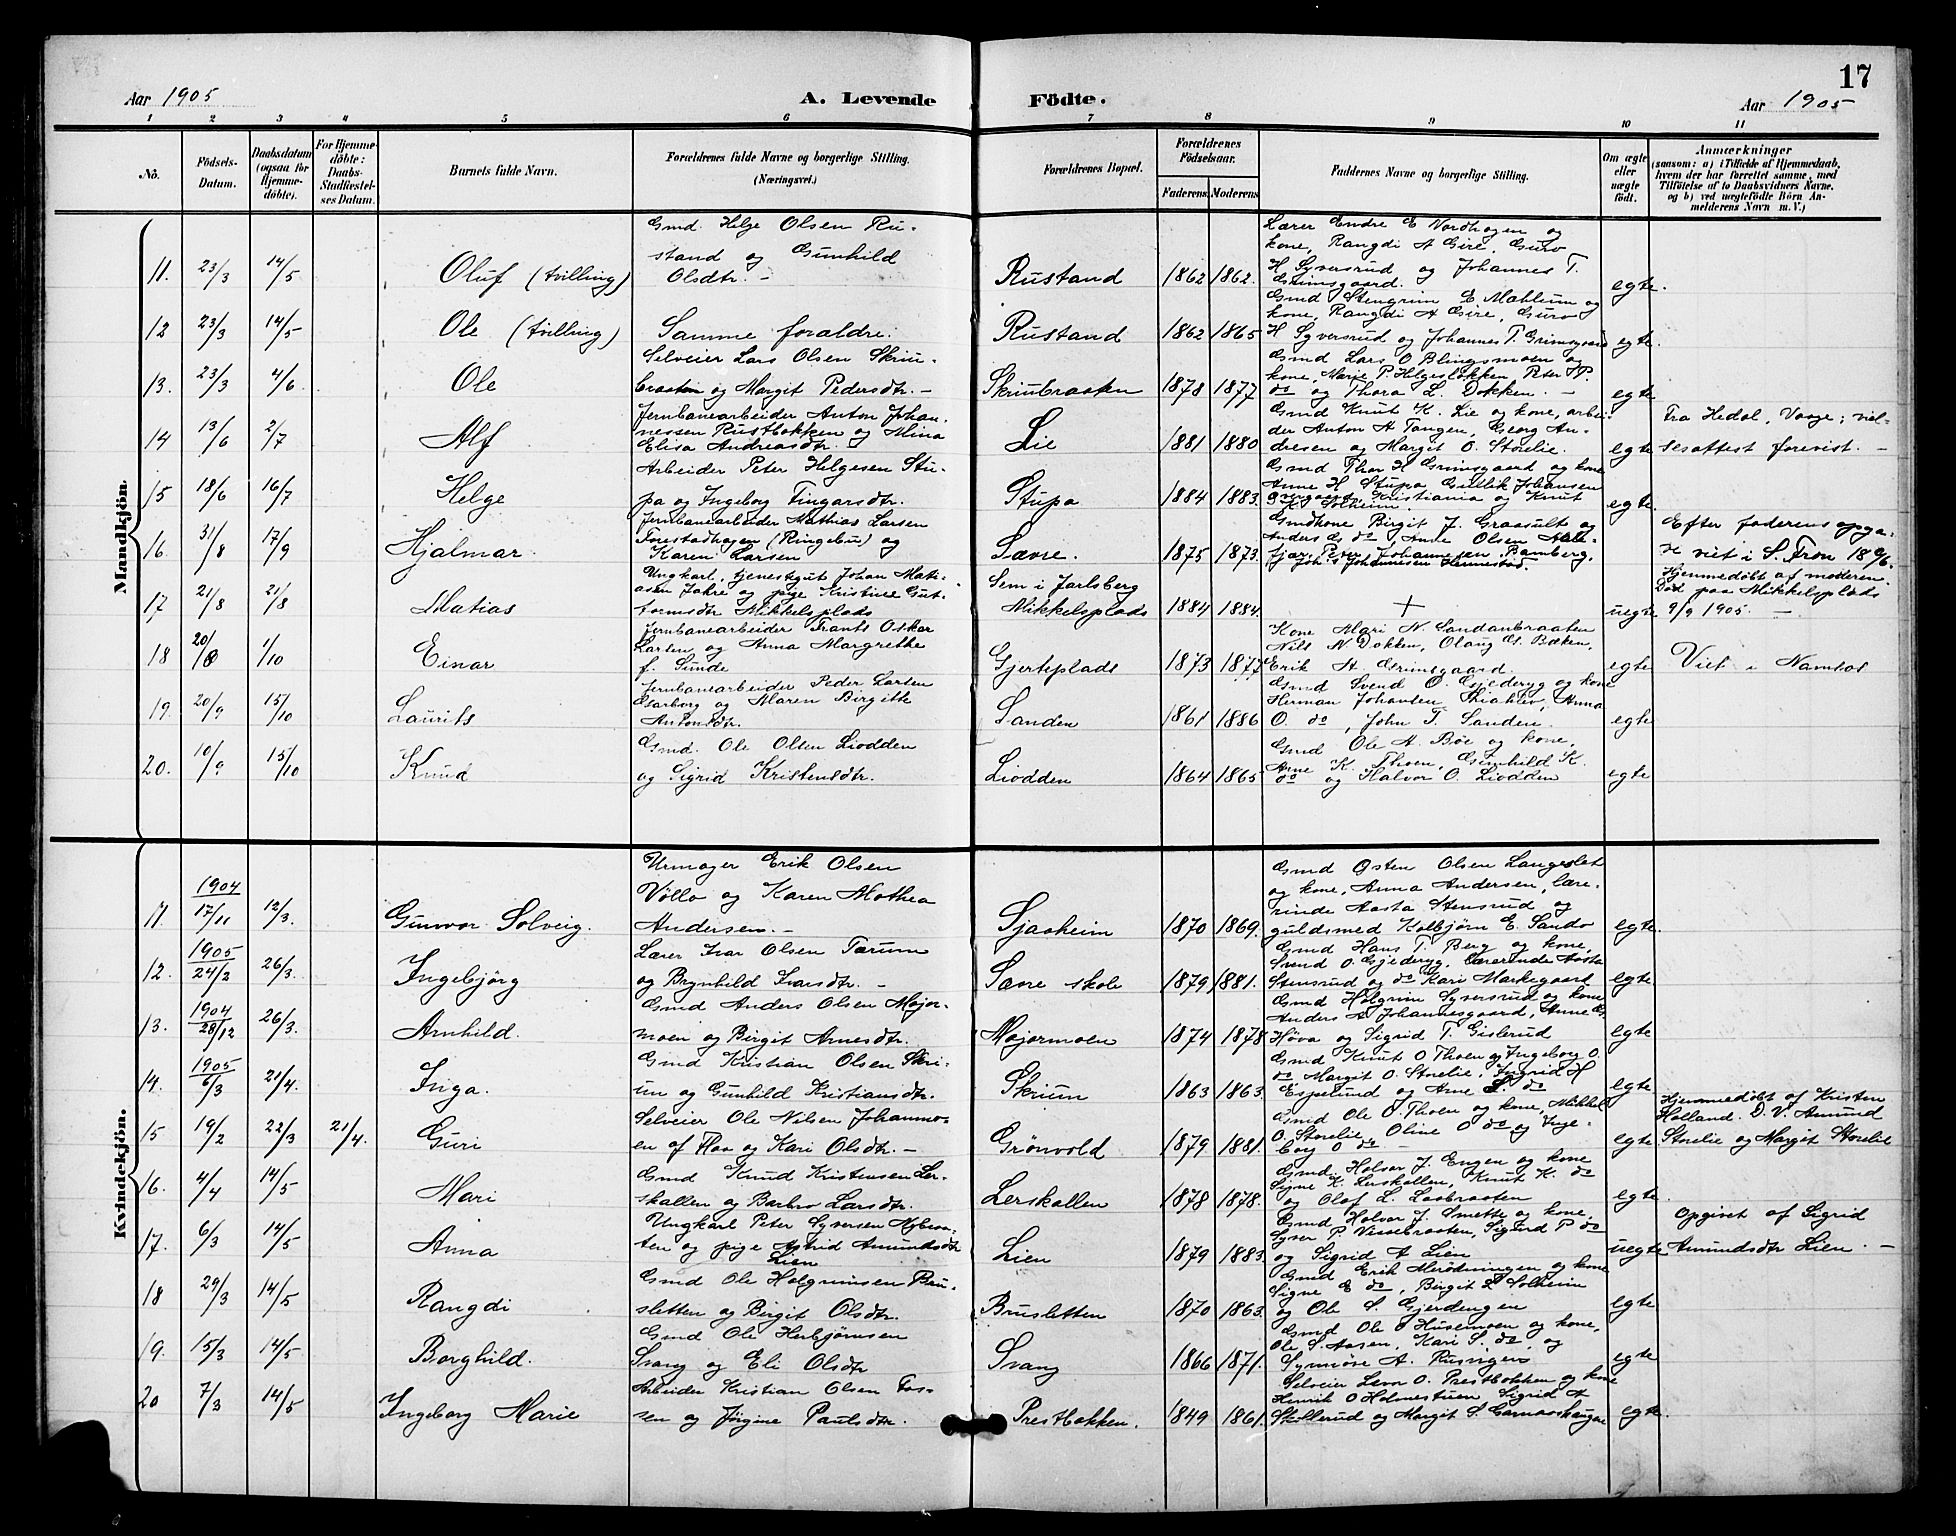 17
Aar 1905
A. Levende
Födte.
Aar 1905
1 2 3 4 5 6 7 8 9 10 11
No.
Födsels-Datum.
Daabsdatum (ogsaa for Hjemme-döbte).
For Hjemme-döbte: Daabs-Stadfæstel-ses Datum.
Barnets fulde Navn.
Forældrenes fulde Navne og borgerlige Stilling.
(Næringsvei.)
Forældrenes Bopæl.
Forældrenes Födselsaar.
Faderens. Moderens.
Faddernes Navne og borgerlige Stilling.
Om ægte eller uægte födt.
Anmærkninger
(saasom: a) i Tilfælde af Hjemmedaab, hvem der har forrettet samme, med Tilföielse af to Daabsvidners Navne, og b) ved uægtefödte Börn An-melderens Navn m. V.)
Mandkjön.
11. 23/3 14/5 Oluf (tvilling) Gmd. Helge Olsen Ru-stand og Gunhild Olsdtr. - Rustand 1862 1862. Lærer Endre E Nordhagen og kone, Rangdi A Gire, Guro H Syversrud og Johannes T. Grimsgaard. egte.
12 23/3 14/5 Ole (tvilling) Samme foraldre. Rustand 1862 1865 Gmd Stengrim E Mæhlum og kone, Rangdi A Gire, Guro H Syversrud og Johannes T. Grimsgaard egte.
13. 23/3 4/6 Ole Selveier Lars Olsen Skriu-braaten og Margit Pedersdtr. - Skriubraaten 1878 1877 Gmd Lars O Blingsmoen og kone, Marie P. Helgesløkken Peter P. do og Thora L. Dokken. - egte
14 13/6 2/7 Alf Jernbanearbeider Anton Johan-nessen Rustbakken og Mina Elisa Andreasdtr. Lie 1881 1880 Gmd Knut K. Lie og kone, arbei-der Anton H Tangen, Georg An-dresen og Margit O. Storelie. egte Fra Hedal, Vaage; viel-sesattest forevist. -
15 18/6 16/7 Helge Arbeider Peter Helgesen Stu-pa og Ingeborg Fingarsdtr. Stupa 1884 1883. Gmd Thor H Grimsgaard og kone Anne H Stupa Gullik Johansen Kristiania og Knut K. Solheim. egte.
16. 31/8 17/9 Hjalmar. Jernbanearbeider Mathias Larsen Forestadhagen (Ringebu) og Karen Larsen Sævre. 1875 1873. Gmdkone Birgit J. Graasult og Anders G do, Anne Olsen Peter Johannesen Bamberg, Johs Johannesen egte. Efter faderens opga-ve viet i S. Fron
17 21/8 21/8 Matias Ungkarl, tjenestgut Johan Mati-asen Jahre og pige Kristine Gut-tormsdtr Mikkelsplads Sem i Jarlsberg Mikkelsplads 1884 1884. + uegte Hjemmedöbt af moderen. Död paa Mikkelsplads 9/9 1905. -
18 20/8 1/10 Einar Jernbanearbeider Frants Oskar Larsen og Anna Margrethe f. Sunde Gjerteplads 1873 1877 Kone Mari N. Sandanbraaten Nils N Dokken, Olaug G. Bæken, Erik A. Grimsgaard egte Viet i Namsos
19. 20/9 15/10 Laurits Jernbanearbeider Peder Larsen Aarborg og Maren Birgitte Antonsdtr. Sanden 1861 1886 Gmd Svend O. Gjederyg og kone Herman Johansen Anna O. do, John T. Sanden. egte
20. 10/9 15/10 Knud Gmd. Ole Olsen Liodden og Sigrid Kristensdtr. Liodden 1864 1865 Gmd Ole A. Böe og kone, Arne K. Thoen, Gunhild K. do og Halvor O. Liodden egte
Kvindekjön.
11. 1904 17/11 12/3. Gunvor Solveig. Urmager Erik Olsen Völlo og Karen Mathea Andersen. - Sjaaheim 1870 1869. Gmd Østen Olsen Langeslet og kone, Anna Andersen, lære-rinde Aasta Stensrud og guldsmed Kolbjörn E. Sando egte.
12. 1905 24/2 26/3. Ingebjörg Lærer Ivar Olsen Tærum og Brynhild Ivarsdtr. - Sævre skole 1879 1881. Gmd Hans T. Berg og kone, Svend O. Gjederyg, lærerinde Aasta Stensrud og do Kari Markegaard egte
13. 1904 28/12 26/3. Arnhild. Gmd Anders Olsen Major-moen og Birgit Arnesdtr. Majormoen 1874 1878 Gmd Holgrim Syversrud og kone Anders A Johannesgaard, Anne G. Høva og Sigrid T. Gislerud egte
14. 1905 6/3 21/4. Inga. Gmd Kristian Olsen Skri-un og Gunhild Kristiansdtr. Skriun 1863 1863. Gmd Knut O Thoen og Ingeborg O. do Margit O. Storelie, Ingrid H Espelund og Arne S. do egte
15 19/2 22/3 21/4. Guri Selveier Ole Nilsen Johannes-en af Flaa og Kari Olsdtr. - Grönvold 1879. 1881. Gmd Ole O. Thoen og kone, Mikkel O. Storelie, Oline O do og Inge-borg O do - egte Hjemmedöbt af Kristen Holland. D. V. Amund Storelie og Margit Storelie
16. 4/4 14/5 Mari Gmd Knud Kristensen Ler-skallen og Barbro Larsdtr. Lerskallen 1878 1878. Gmd. Halvor J. Engen og kone Signe K. Lerskallen, Knut K. do og Olaf L. Laabraaten egte.
17. 6/3 14/5 Anna Ungkarl Peter Syversen Nybraa-ten og pige Astrid Amundsdtr Lien Lien 1879 1883. Gmd Halvor J. Smette og kone, Syver P. Vissebraaten, Sigurd P do og Sigrid A Lien uegte Opgivet af Sigrid Amundsdtr Lien. -
18 29/3 14/5 Rangdi Gmd Ole Holgrimsen Bru-sletten og Birgit Olsdtr. Brusletten 1870 1863. Gmd Erik Mørödningen og kone Signe E do, Birgit L Solheim og Ole S. Gjerdengen egte
19. 15/3 14/5. Borghild. Gmd Ole Herbjörnsen Svang og Eli Olsdtr Svang 1866 1871. Gmd Ole O Husemoen og kone, Ole S. Aasen, Kari S. do, og Synnöve A. Rusvigen egte
20 7/3 14/5 Ingeborg Marie Arbeider Kristian Olsen Fos-sen og Jörgine Paulsdtr. Prestbakken. 1849 1861. Selveier Levor O. Prestbakken og kone Henrik O Holmestuen Sigrid A Skollerud og Margit S. Garnaashaugen egte.